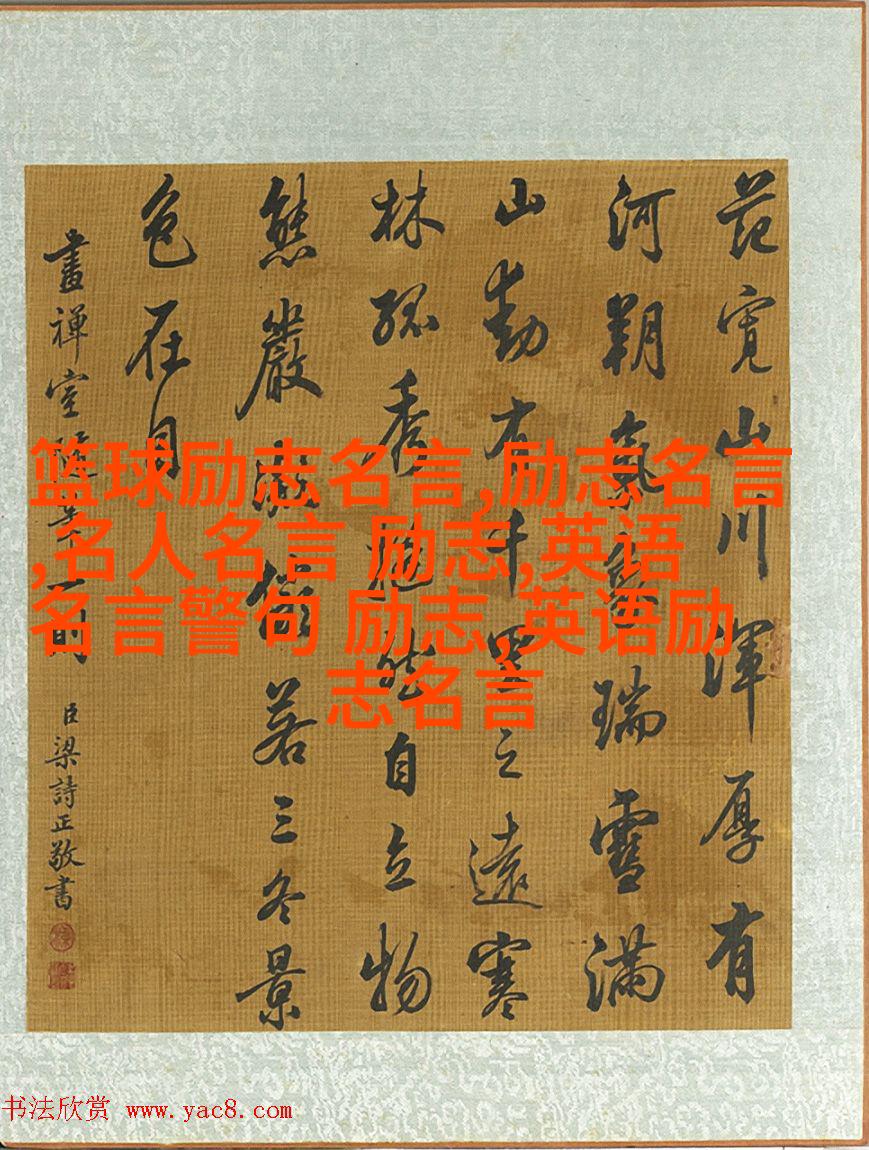 范寬山川渾厚有
河朔氣象瑞雪滿
山動有千里之遠寒
林孤秀挺然自立物
態嚴凝儼若三冬景
色在目
畫禪室隨筆一則 臣梁詩正敬書
篮球励志名言,励志名言
,名人名言 励志,英语
名言警句 励志,英语励
志名言
书法欣赏 www.yac8.com